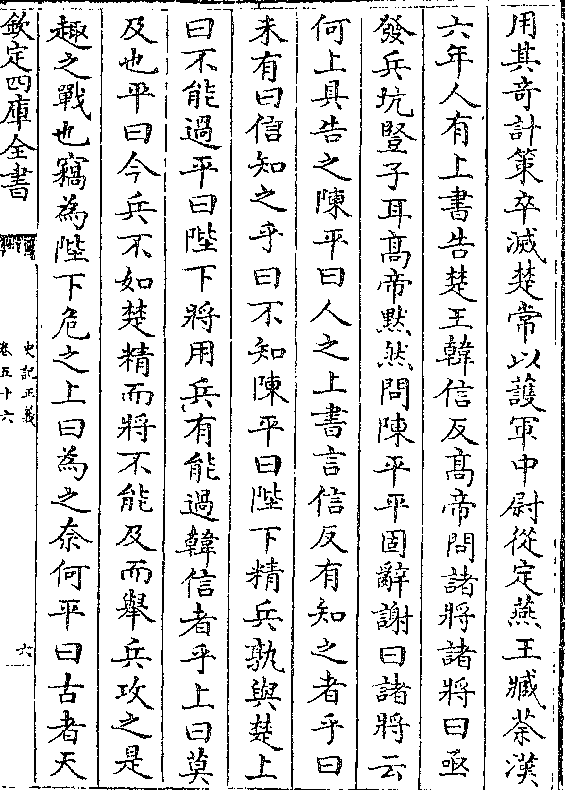 用其奇計策卒滅楚常以䕶軍中尉從定燕王臧荼漢
六年人有上書告楚王韓信反髙帝問諸將諸將曰亟
發兵坑豎子耳髙帝黙然問陳平平固辭謝曰諸將云
何上具告之陳平曰人之上書言信反有知之者乎曰
未有曰信知之乎曰不知陳平曰陛下精兵孰與楚上
曰不能過平曰陛下將用兵有能過韓信者乎上曰莫
及也平曰今兵不如楚精而將不能及而舉兵攻之是
趣之戰也竊為陛下危之上曰為之奈何平曰古者天
欽定四庫全書
史記正義
卷五十六
六